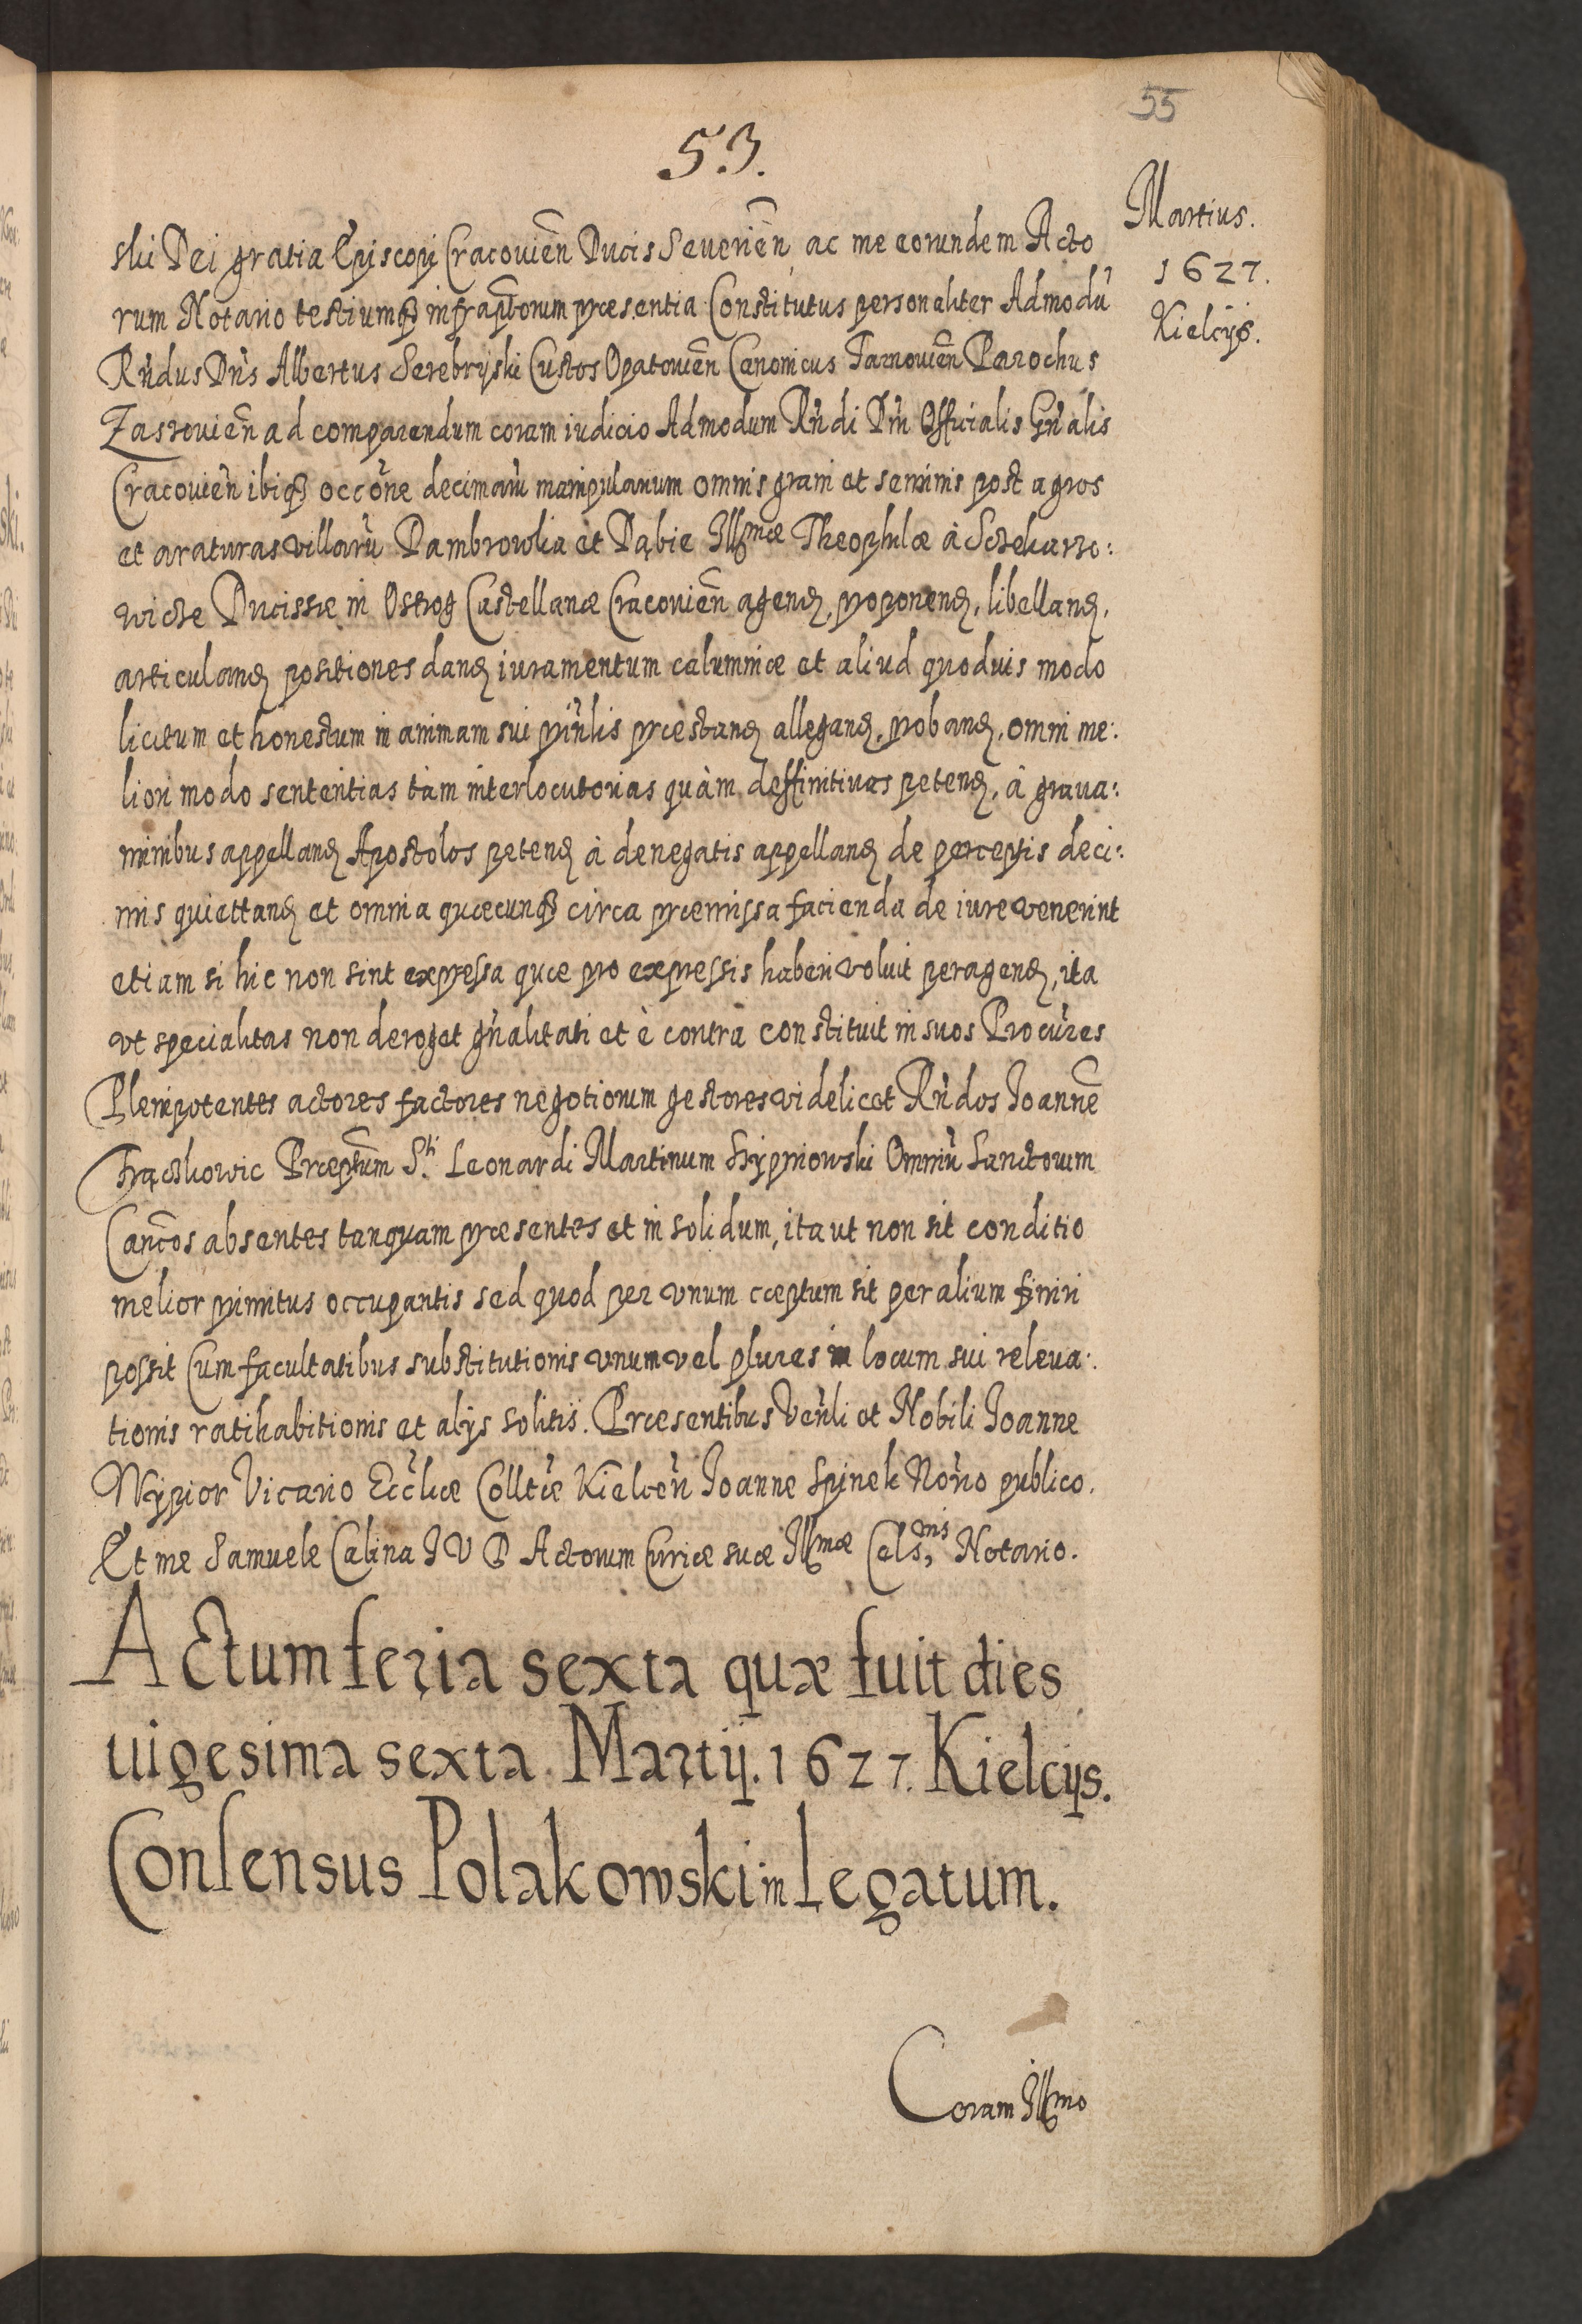 55
53.
Martius.
1627.
Kielcijs.
ski Dei gratia Episcopi Cracovieñ Ducis Severieñ, ac me eorundem Acto
rum Notario testiumq̃ infrap̃torum præsentia Constitutus personaliter Admodũ
Rñdus Dñs Albertus Serebryski Custos Opatovieñ Canonicus Tarnovieñ Parochus
Zasrovieñ ad comparendum coram iudicio Admodum Rñdi Dñi Officialis Gñalis
Cracovieñ ibiq̃ occõne decimarũ manipularium omnis grani et seminis post agros
et araturas villarũ Dambrowka et Dąbie Illmæ Theophilæ à
wicze Ducissæ in Ostrog Castellanæ Cracovieñ agend, proponend, libelland,
articuland positiones dand iuramentum calumniæ et aliud quoduis modo
licitum et honestum in animam sui prĩnlis præstand allegand, proband, omni me:
liori modo sententias tàm interlocutorias quàm deffinitiuas petend, à graua:
minibus appelland Apostolos petend à denegatis appelland de perceptis deci:
mis quiettand et omnia quæcunq̃ circa præmissa facienda de iure venerint
etiam si hic non sint expressa quæ pro expressis haberi voluit peragend, ita
vt specialitas non deroget gñalitati et è contra constituit in suos Procũres
Plenipotentes actores factores negotiorum gestores videlicet Rñdos Joannẽ
Præptum S.ti Leonardi Martinum Omniũ Sanctorum
Cancõs absentes tanquam præsentes et in solidum, ita ut non sit conditio
melior primitus occupantis sed quod per vnum cæptum sit per alium finiri
possit Cum facultatibus substitutionis vnum vel plures in locum sui releua:
tionis ratihabitionis et alijs solitis. Præsentibus Veñli et Nobili Joanne
Wypior Vicario Ecclĩæ Colltæ Kielceñ Joanne Spinek Noŕio publico.
Et me Samuele Calina J V D Actorum Curiæ suæ Illmæ Cels,nis Notario.
Actum feria sexta quæ fuit dies
uigesima sexta. Martij. 1627. Kielcijs.
Consensus Polakowski in Legatum.
Coram Illmo